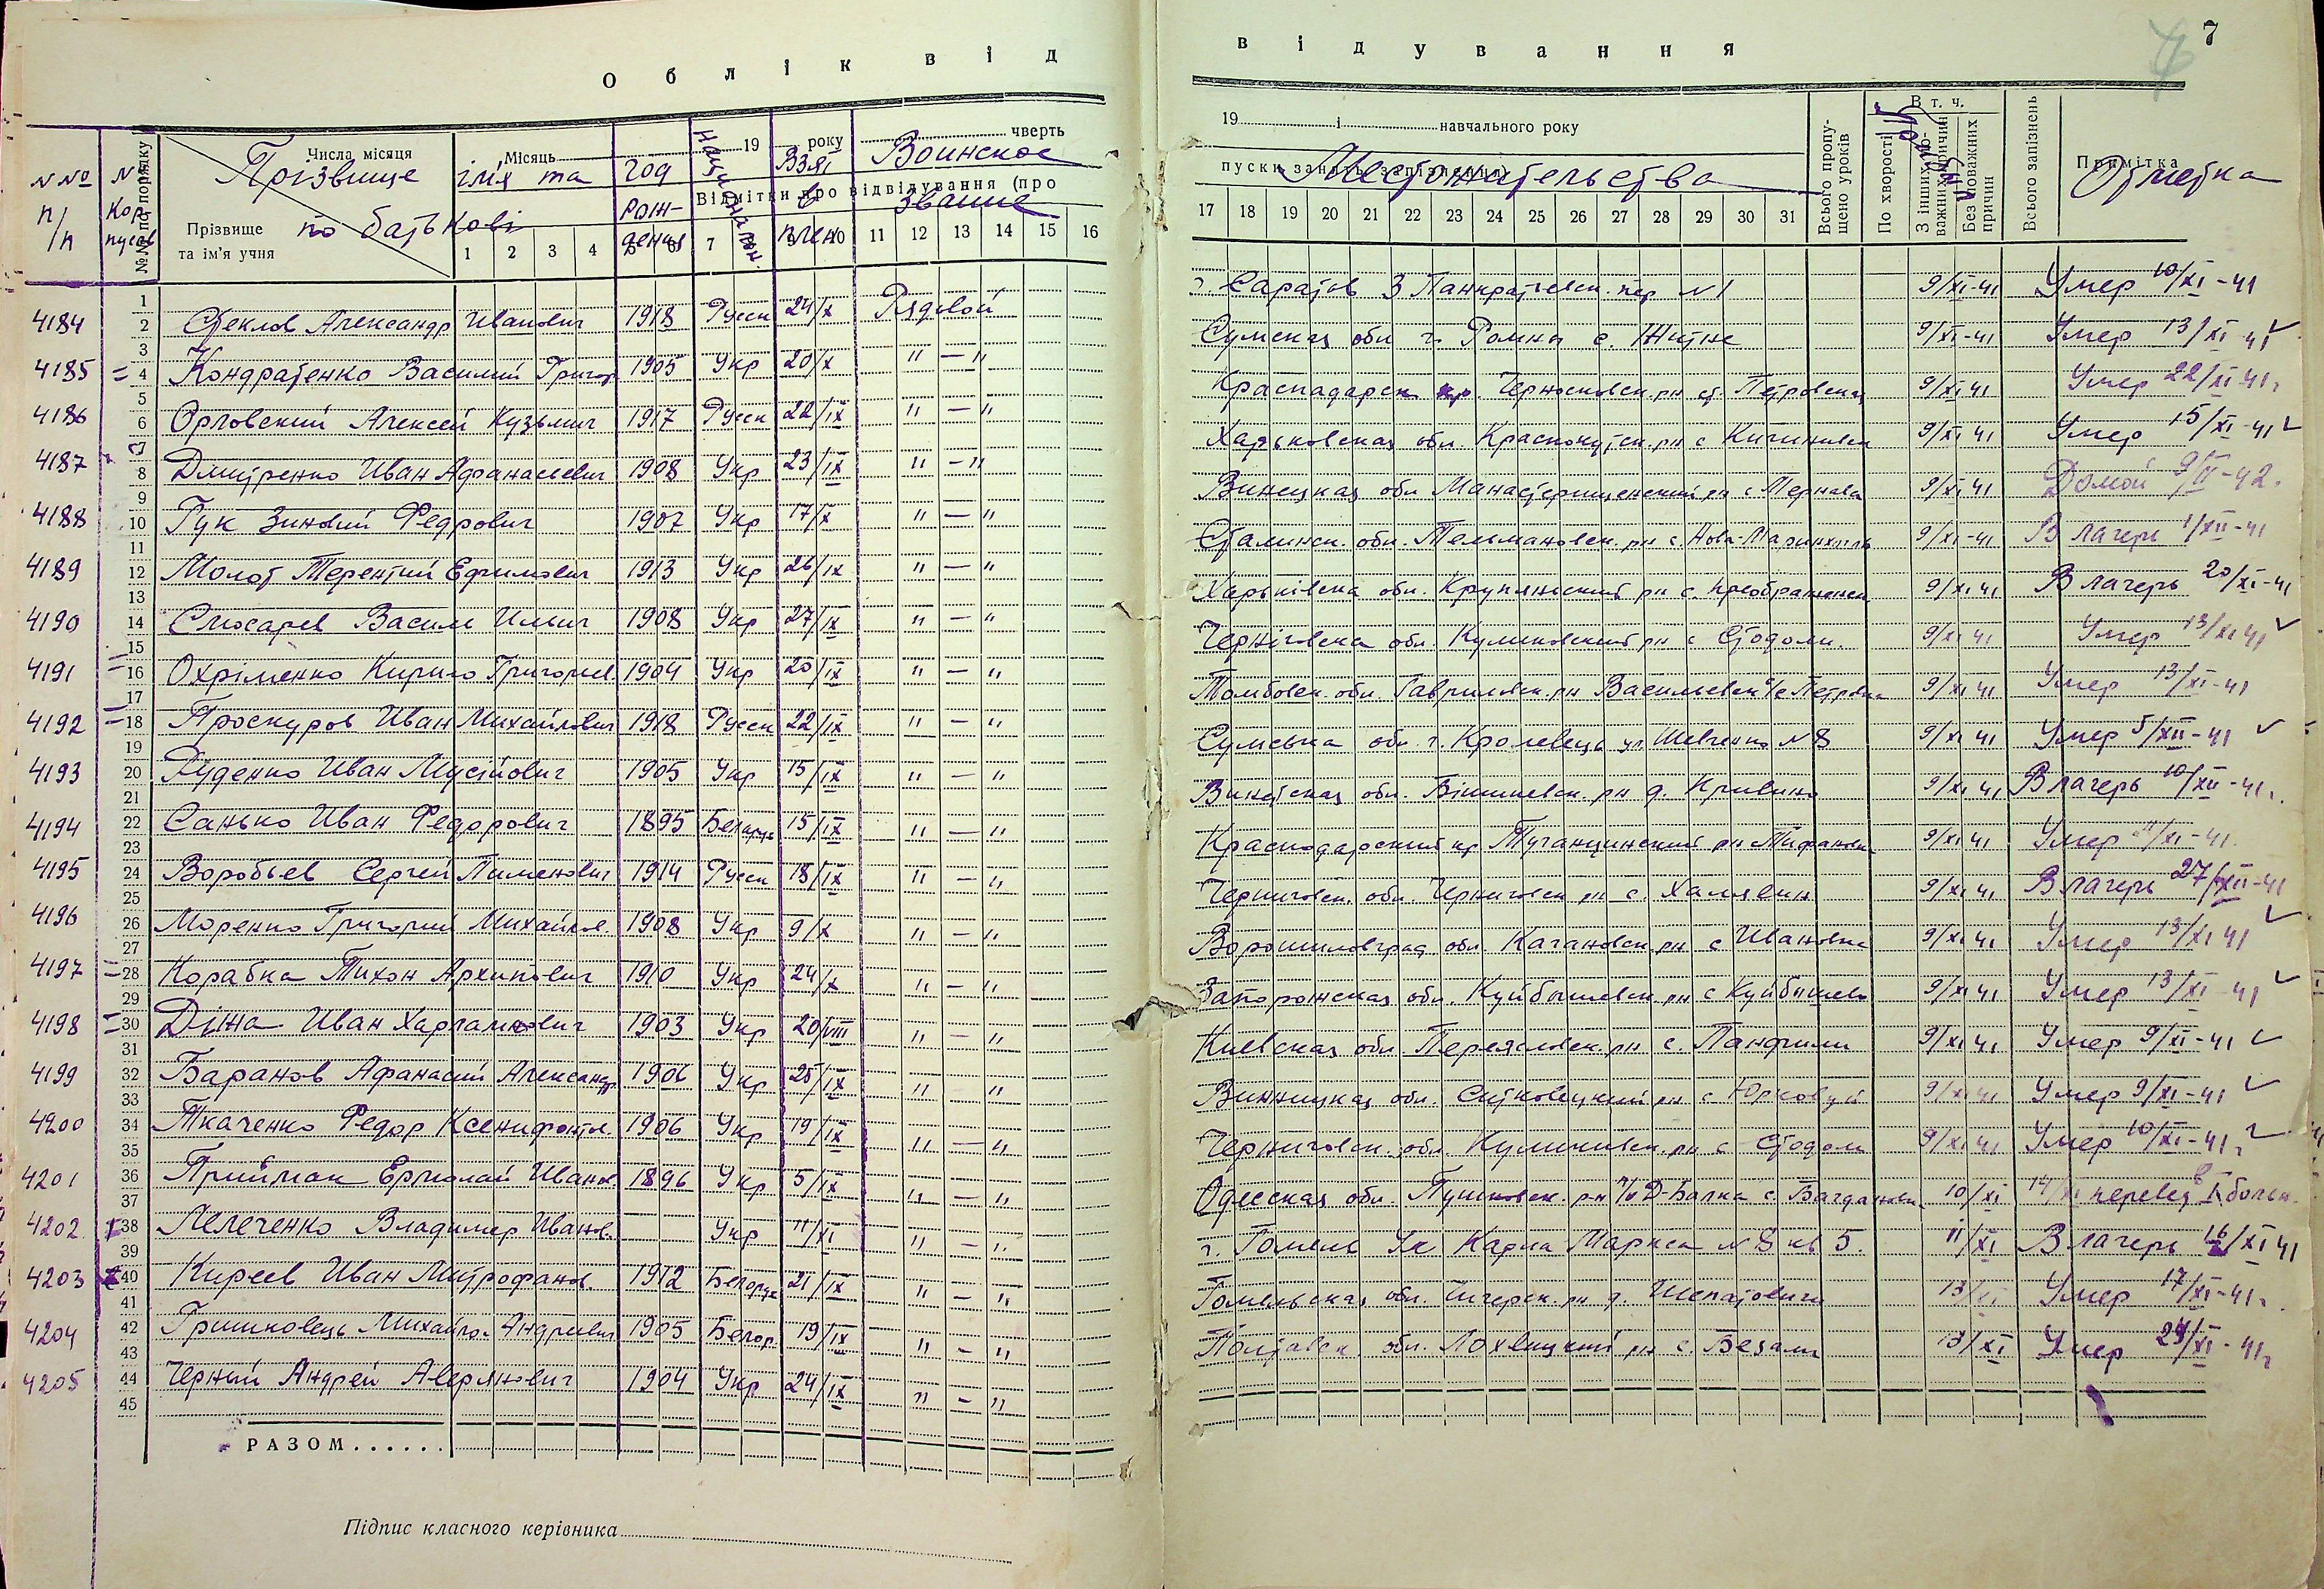 Облік відвідування
7
19 і навчального року
Числа місяця Місяць 19 року чверть
В т. ч.
№№ п/п
№ Корпусов
№№ по порядку
Прізвище імя та по батькові
Прізвище та ім'я учня
Год рождения
Національн.
Взят в плен
Воинское звание
Відмітки про відвідування (про пуски занять, запізнення)
Местожательства
Всього пропущено уроків
По хворості
З інших поважних причин
Без поважних причин
Всього запізнень
Примітка
Отметка
1 2 3 4 5 6 7 8 9 10 11 12 13 14 15 16 17 18 19 20 21 22 23 24 25 26 27 28 29 30 31
4184 Стеклов Александр Иванович 1918 Русск 24/X Рядовой г. Саратов 3 Панкратьевск. пер N 1 9/XI-41 Умер 10/XI-41
4185 = Кондратенко Василий Григор 1905 Укр 20/X "—" Сумская обл г. Ромны с. Житне 9/XI-41 Умер 13/XI-41
4186 Орловский Алексей Кузьмич 1917 Русск 22/IX "—" Краснадарск кр. рн ст. Петровская 9/XI 41 Умер 22/XI-41г
4187 Дмитренко Иван Афанасьевич 1908 Укр 23/IX "—" Харьковская обл. Краснокутск. рн с 9/XI 41 Умер 15/XI-41
4188 Гук Зиновий Федрович 1907 Укр 17/X "—" Винецкая обл Манастрищенский рн с 9/XI 41 Домой 9/II-42.
4189 Молот Терентий Ефимович 1913 Укр 26/IX "—" Сталинск. обл. Тельмановск. рн с. 9/XI-41 В лагерь 1/XII-41
4190 Слюсарев Василь Ильич 1908 Укр 27/IX "—" Харьківска обл. Купянський рн с. Преображенск 9/XI 41 В лагерь 20/XI-41
4191 = Охріменко Кирило Григорьев. 1904 Укр 20/IX "—" Черніговска обл. Куликовский рн с Стодоли. 9/XI 41 Умер 13/XI 41
4192 = Проскуров Иван Михайлович 1918 Русск 22/IX "—" Томбовск. обл. Гавриловск. рн Васильевск с/с Петровка 9/XI 41 Умер 13/XI-41
4193 Руденко Иван Мусійович 1905 Укр 15/IX "—" Сумська обл. г. Кролевець ул. Шевченко N 8 9/XI 41 Умер 5/XII-41
4194 Санько Иван Федорович 1895 Белорусь 15/IX "—" обл. рн д. Кривино 9/XI 41 В лагерь 10/XII-41г.
4195 Воробьев Сергей Пименович 1914 Русск 18/IX "—" Краснодарский кр рн 9/XI 41 Умер 11/XI-41.
4196 Моренко Григорий Михайлов. 1908 Укр 9/X "—" Черниговск. обл. Черниговск рн с. Халявин 9/XI 41 В лагерь 27/XII-41
4197 = Корабка Тихон Архипович 1910 Укр 24/X "—" Ворошиловград обл. Качановск. рн. с Ивановка 9/XI 41 Умер 13/XI 41
4198 = Діжа Иван Харлампович 1903 Укр 20/VIII "—" Запорожская обл. Куйбышевск. рн с Куйбишево 9/XI 41 Умер 13/XI-41
4199 Баранов Афанасий Александр 1906 Укр 25/IX " " Киевская обл Переясловск. рн с. Панфили 9/XI 41 Умер 9/XI-41
4200 Ткаченко Федор Ксенифонтов. 1906 Укр 19/IX "—" Винницкая обл. Ситковецкий рн. с 9/XI 41 Умер 9/XI-41
4201 Прийман Ермолай Иванов. 1896 Укр 5/IX "—" Черниговск. обл. Куликивск. рн с Стодоли 9/XI 41 Умер 10/XI-41г
4202 38 Лелеченко Владимер Иванов. Укр 11/XI "—" Одесская обл. рн п/о Д-Балка с. Багдановка 10/XI 14/XI перевед в I больн.
4203 40 Киреев Иван Митрофанов. 1912 Белорус 21/IX "—" г. Гомель Ул Карла Маркса N 8 кв 5. 11/XI В лагерь 16/XI 41
4204 Гришковець Михайло. Андреевич 1905 Белор. 19/IX "—" Гомельская обл. Чичерск. рн д. Шепатовичи 13/XI Умер 17/XI-41г.
4205 Черный Андрей Аверянович 1904 Укр 24/IX "—" Полтавск. обл. Лохвицкий рн с. Безали 13/XI Умер 24/XI-41г
РАЗОМ......
Підпис класного керівника